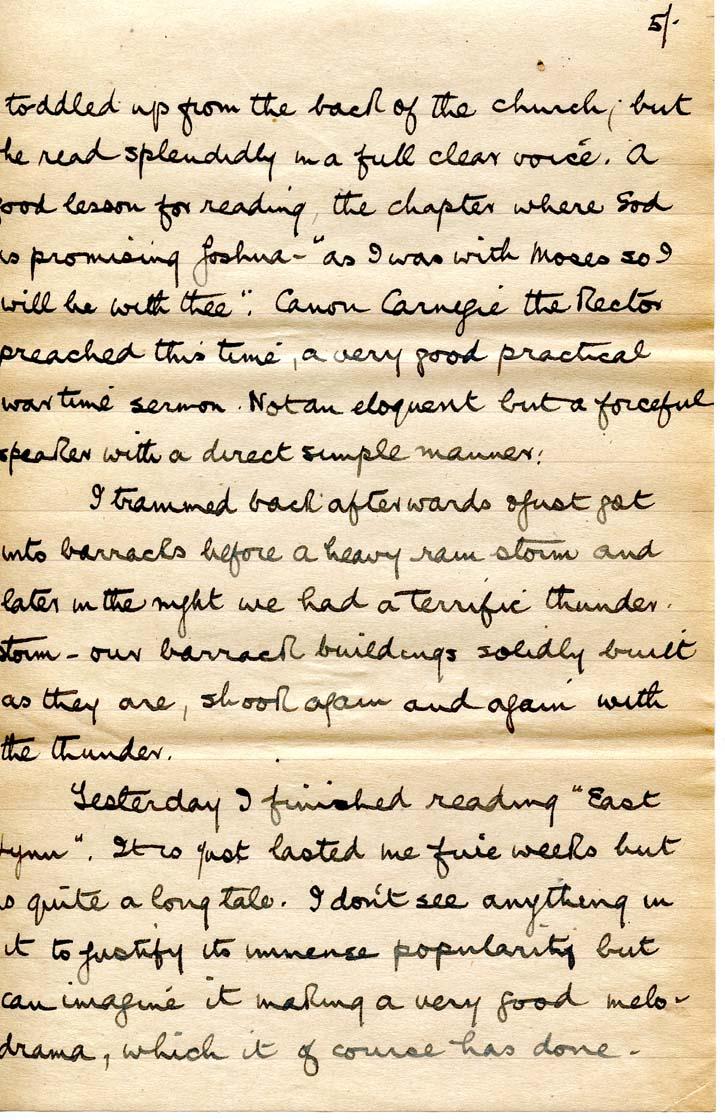 5/.
toddled up from the back of the church, but
he read splendidly in a full clear voice. A
good lesson for reading, the chapter where God
is promising Joshua - "as I was with Moses so I
will be with thee". Canon Carnegie the Rector
preached this time, a very good practical
war time sermon. Not an eloquent but a forceful
speaker with a direct simple manner.
I trammed back afterwards & just got
into barracks before a heavy rain storm and
later in the night we had a terrific thunder.
storm - our barrack buildings solidly built
as they are, shook again and again with
the thunder.
Yesterday I finished reading "East
Lynn". It is just lasted me five weeks but
is quite a long tale. I don't see anything in
it to justify its immense popularity but
can imagine it making a very good melo-
drama, which it of course has done.